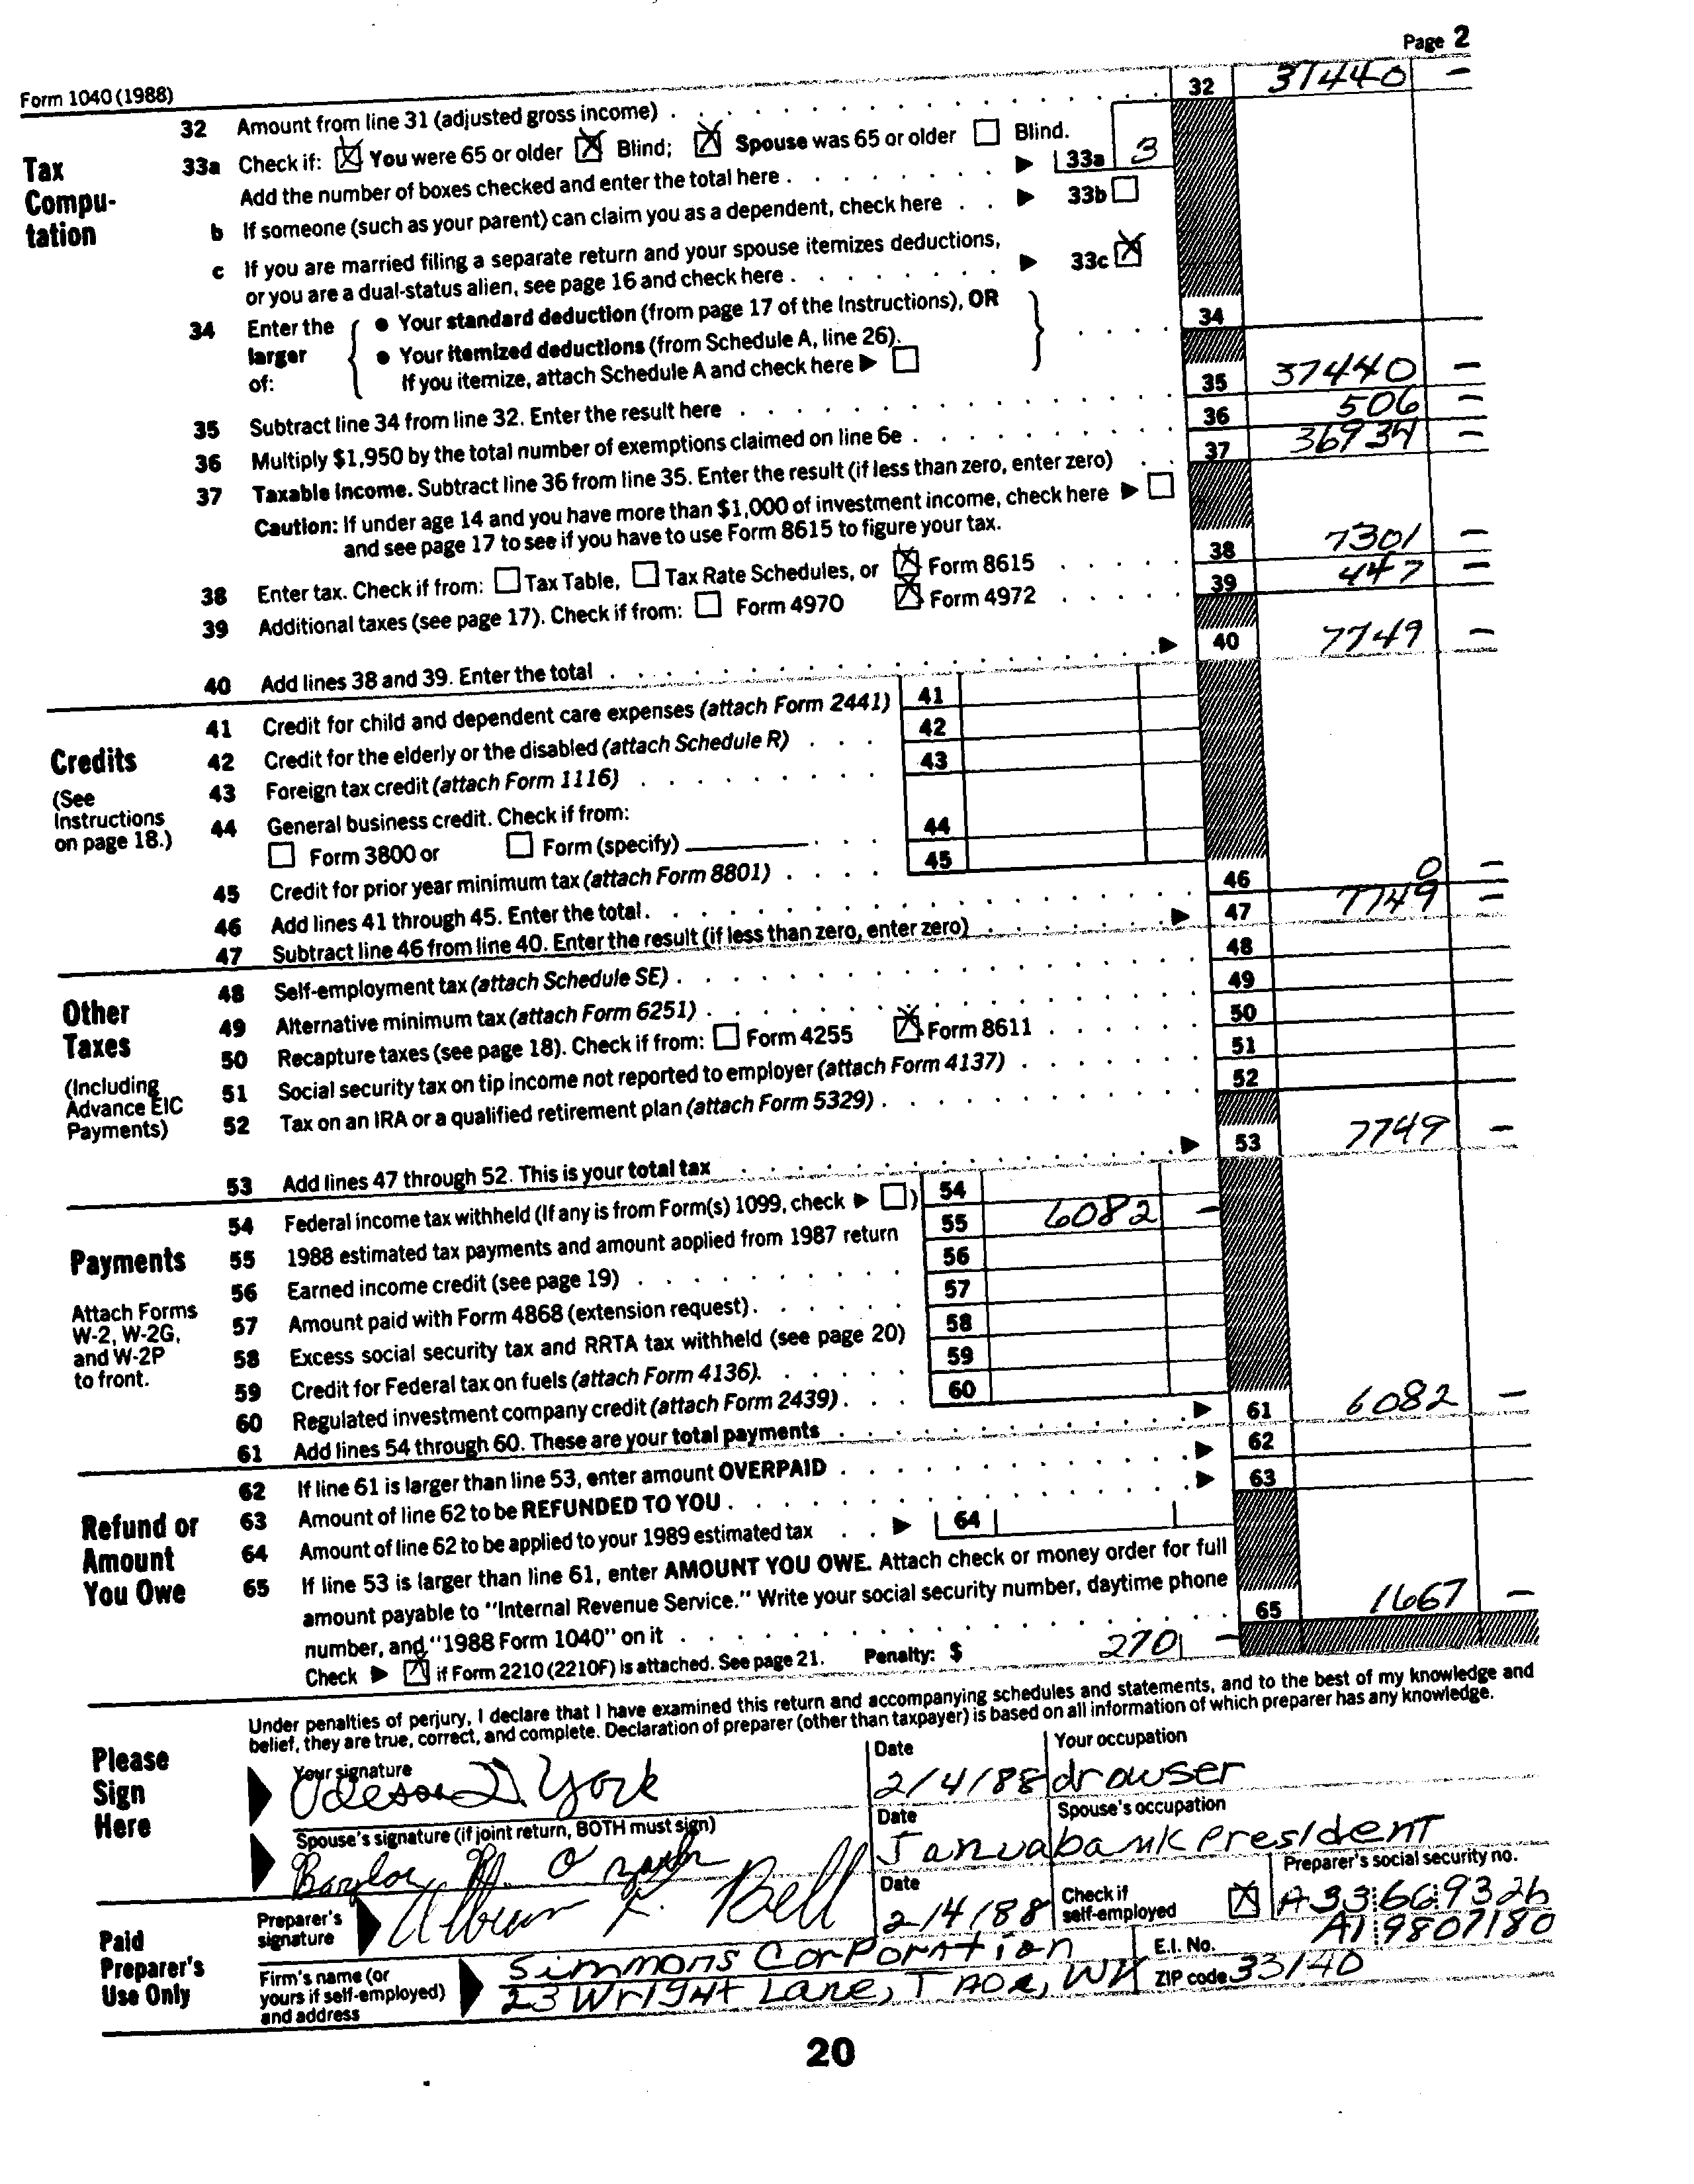 Page 2
Form 1040 (1988)
32 Amount from line 31 (adjusted gross income) . . . 32 37440 –
Tax Computation
33a Check if: ☒ You were 65 or older ☒ Blind; ☒ Spouse was 65 or older ☐ Blind.
Add the number of boxes checked and enter the total here . . . ▶ 33a 3
b If someone (such as your parent) can claim you as a dependent, check here . . ▶ 33b ☐
c If you are married filing a separate return and your spouse itemizes deductions,
or you are a dual-status alien, see page 16 and check here . . . ▶ 33c ☒
34 Enter the larger of: { ● Your standard deduction (from page 17 of the Instructions), OR
● Your itemized deductions (from Schedule A, line 26).
If you itemize, attach Schedule A and check here ▶ ☐ } . . . . 34
35 Subtract line 34 from line 32. Enter the result here . . . 35 37440 –
36 Multiply $1,950 by the total number of exemptions claimed on line 6e . . . 36 506 –
37 Taxable income. Subtract line 36 from line 35. Enter the result (if less than zero, enter zero) . . 37 36934 –
Caution: If under age 14 and you have more than $1,000 of investment income, check here ▶ ☐
and see page 17 to see if you have to use Form 8615 to figure your tax.
38 Enter tax. Check if from: ☐ Tax Table, ☐ Tax Rate Schedules, or ☒ Form 8615 . . . 38 7301 –
39 Additional taxes (see page 17). Check if from: ☐ Form 4970 ☒ Form 4972 . . . 39 447 –
40 Add lines 38 and 39. Enter the total . . . ▶ 40 7749 –
Credits
(See Instructions on page 18.)
41 Credit for child and dependent care expenses (attach Form 2441) 41
42 Credit for the elderly or the disabled (attach Schedule R) . . . 42
43 Foreign tax credit (attach Form 1116) . . . 43
44 General business credit. Check if from:
☐ Form 3800 or ☐ Form (specify) . . . 44
45 Credit for prior year minimum tax (attach Form 8801) . . . . 45
46 Add lines 41 through 45. Enter the total . . . 46 0 –
47 Subtract line 46 from line 40. Enter the result (if less than zero, enter zero) . . . ▶ 47 7749 –
Other Taxes
(Including Advance EIC Payments)
48 Self-employment tax (attach Schedule SE) . . . 48
49 Alternative minimum tax (attach Form 6251) . . . 49
50 Recapture taxes (see page 18). Check if from: ☐ Form 4255 ☒ Form 8611 . . . 50
51 Social security tax on tip income not reported to employer (attach Form 4137) . . . 51
52 Tax on an IRA or a qualified retirement plan (attach Form 5329) . . . 52
53 Add lines 47 through 52. This is your total tax . . . ▶ 53 7749 –
Payments
Attach Forms W-2, W-2G, and W-2P to front.
54 Federal income tax withheld (If any is from Form(s) 1099, check ▶ ☐ ) 54
55 1988 estimated tax payments and amount applied from 1987 return 55 6082 –
56 Earned income credit (see page 19) . . . 56
57 Amount paid with Form 4868 (extension request) . . . 57
58 Excess social security tax and RRTA tax withheld (see page 20) 58
59 Credit for Federal tax on fuels (attach Form 4136) . . . 59
60 Regulated investment company credit (attach Form 2439) . . . 60
61 Add lines 54 through 60. These are your total payments . . . ▶ 61 6082 –
Refund or Amount You Owe
62 If line 61 is larger than line 53, enter amount OVERPAID . . . ▶ 62
63 Amount of line 62 to be REFUNDED TO YOU . . . ▶ 63
64 Amount of line 62 to be applied to your 1989 estimated tax . . ▶ 64
65 If line 53 is larger than line 61, enter AMOUNT YOU OWE. Attach check or money order for full
amount payable to "Internal Revenue Service." Write your social security number, daytime phone
number, and "1988 Form 1040" on it . . . 65 1667 –
Check ▶ ☒ if Form 2210 (2210F) is attached. See page 21. Penalty: $ 270 –
Under penalties of perjury, I declare that I have examined this return and accompanying schedules and statements, and to the best of my knowledge and
belief, they are true, correct, and complete. Declaration of preparer (other than taxpayer) is based on all information of which preparer has any knowledge.
Please Sign Here
Your signature D. York Date 2/4/88 Your occupation drowser
Spouse's signature (if joint return, BOTH must sign) Date Spouse's occupation bank President
Paid Preparer's Use Only
Preparer's signature Bell Date 2/4/88 Check if self-employed ☒ Preparer's social security no. A33 66 9326
Firm's name (or yours if self-employed) and address Simmons Corporation E.I. No. A1 9807180
23 Wright Lane, ZIP code 33140
20